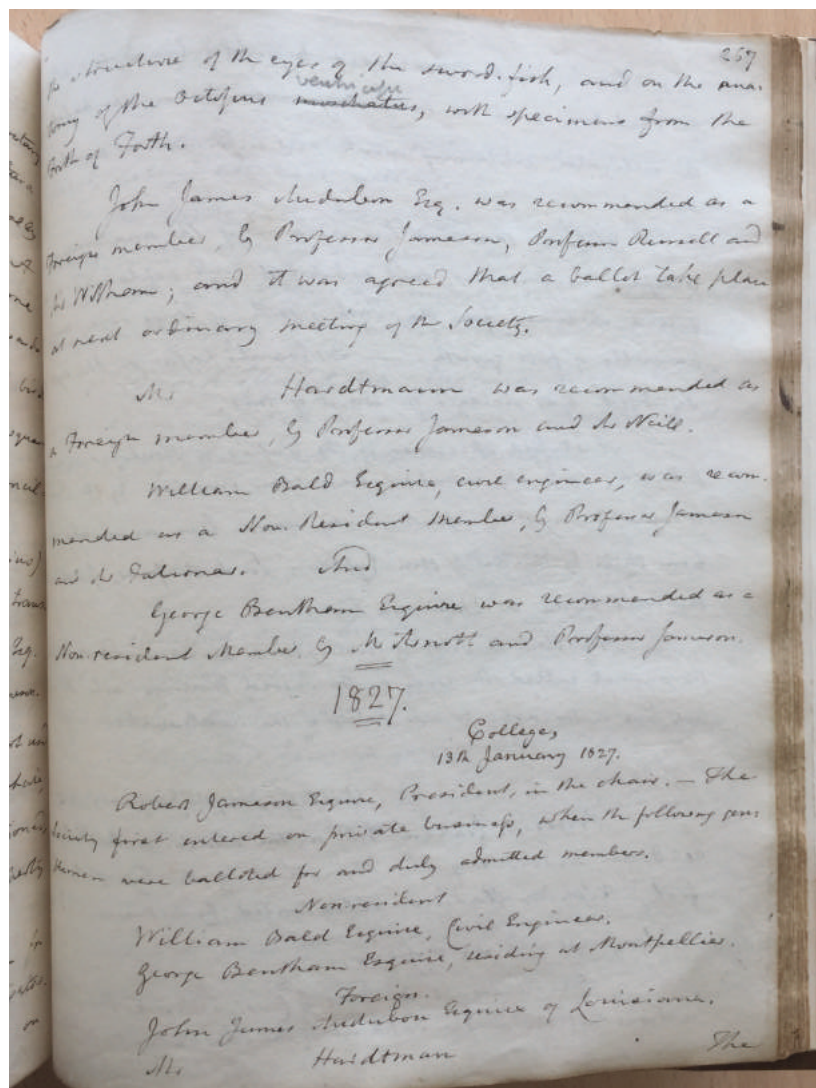 257
the structure of the eyes of the sword-fish, and on the ana-
tomy of the Octopus ventricosus moschatus, with specimens from the
Firth of Forth.
John James Audubon Esq. was recommended as a
Foreign member, by Professor Jameson, Professor Russell and
Dr Witham; and it was agreed that a ballot take place
at next ordinary meeting of the Society.
Mr Hardtmann was recommended as
a Foreign member, by Professor Jameson and Mr Neill.
William Bald Esquire, civil engineer, was recom-
mended as a Non-Resident Member, by Professor Jameson
and Mr Falconar. And
George Bentham Esquire was recommended as a
Non-resident Member by Mr Arnott and Professor Jameson.
1827.
College,
13th January 1827.
Robert Jameson Esquire, President, in the chair. – The
Society first entered on private business, when the following gen-
tlemen were balloted for and duly admitted members.
Non-resident
William Bald Esquire, Civil Engineer.
George Bentham Esquire, residing at Montpellier.
Foreign.
John James Audubon Esquire of Louisiana.
Mr Hardtman
The